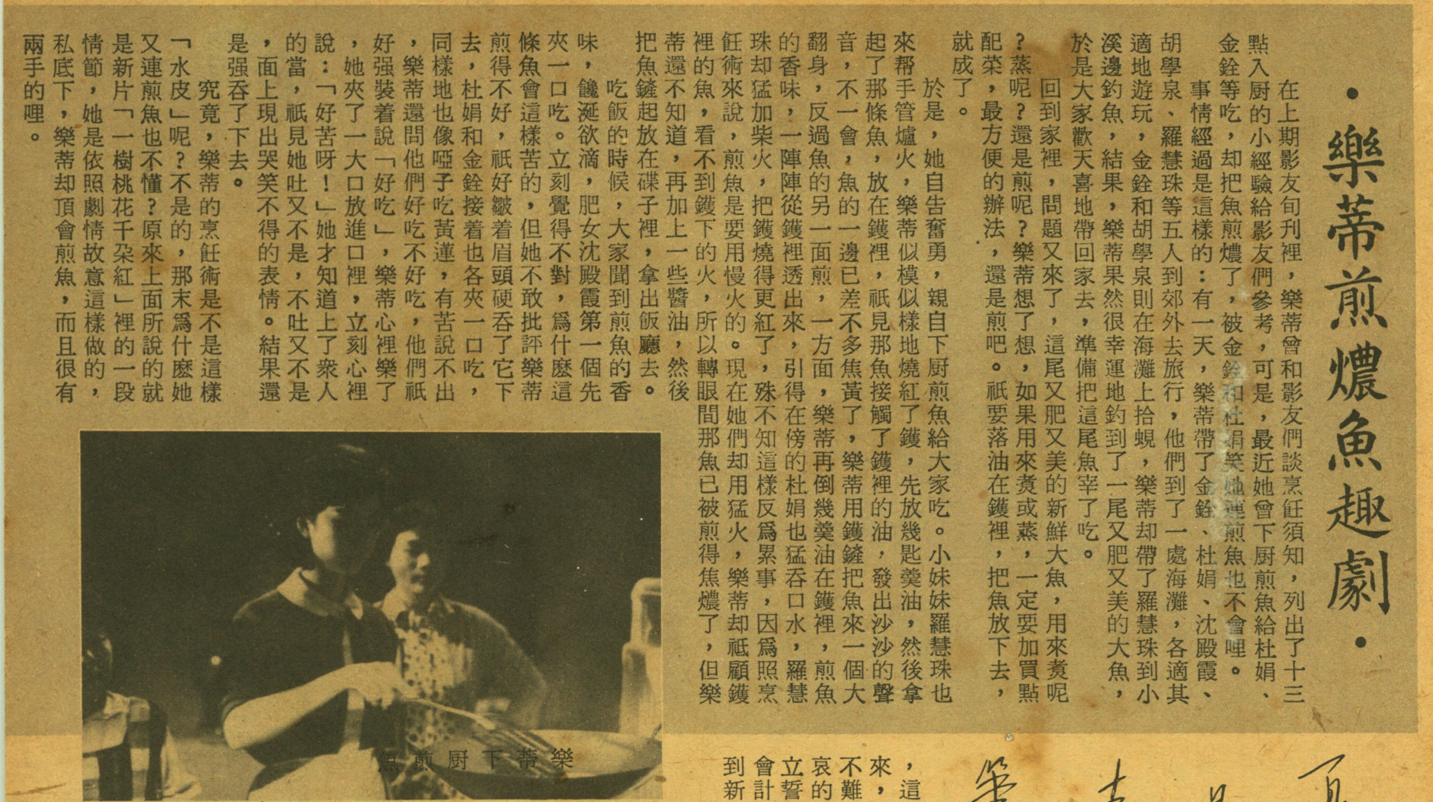 ·樂蒂煎燶魚趣劇·
在上期影友旬刊裡，樂蒂曾和影友們談烹飪須知，列出了十三
點入厨的小經驗給影友們參考，可是，最近她曾下厨煎魚給杜娟、
金銓等吃，却把魚煎燶了，被金銓和杜娟笑她連煎魚也不會哩。
事情經過是這樣的：有一天，樂蒂帶了金銓、杜娟、沈殿霞、
胡學泉、羅慧珠等五人到郊外去旅行，他們到了一處海灘，各適其
適地遊玩，金銓和胡學泉則在海灘上拾蜆，樂蒂却帶了羅慧珠到小
溪邊釣魚，結果，樂蒂果然很幸運地釣到了一尾又肥又美的大魚，
於是大家歡天喜地帶回家去，準備把這尾魚宰了吃。
回到家裡，問題又來了，這尾又肥又美的新鮮大魚，用來煑呢
？蒸呢？還是煎呢？樂蒂想了想，如果用來煑或蒸，一定要加買點
配菜，最方便的辦法，還是煎吧。祇要落油在鑊裡，把魚放下去，
就成了。
於是，她自告奮勇，親自下厨煎魚給大家吃。小妹妹羅慧珠也
來帮手管爐火，樂蒂似模似樣地燒紅了鑊，先放幾匙羹油，然後拿
起了那條魚，放在鑊裡，祇見那魚接觸了鑊裡的油，發出沙沙的聲
音，不一會，魚的一邊已差不多焦黃了，樂蒂用鑊鏟把魚來一個大
翻身，反過魚的另一面煎，一方面，樂蒂再倒幾羹油在鑊裡，煎魚
的香味，一陣陣從鑊裡透出來，引得在傍的杜娟也猛吞口水，羅慧
珠却猛加柴火，把鑊燒得更紅了，殊不知這樣反爲累事，因爲照烹
飪術來說，煎魚是要用慢火的。現在她們却用猛火，樂蒂却祇顧鑊
裡的魚，看不到鑊下的火，所以轉眼間那魚已被煎得焦燶了，但樂
蒂還不知道，再加上一些醬油，然後
把魚鏟起放在碟子裡，拿出飯廳去。
吃飯的時候，大家聞到煎魚的香
味，饞涎欲滴，肥女沈殿霞第一個先
夾一口吃。立刻覺得不對，爲什麽這
條魚會這樣苦的，但她不敢批評樂蒂
煎得不好，祇好皺着眉頭硬吞了它下
去，杜娟和金銓接着也各夾一口吃，
同樣地也像啞子吃黃蓮，有苦說不出
，樂蒂還問他們好吃不好吃，他們祇
好强裝着說「好吃」，樂蒂心裡樂了
，她夾了一大口放進口裡，立刻心裡
說：「好苦呀！」她才知道上了衆人
的當，祇見她吐又不是，不吐又不是
，面上現出哭笑不得的表情。結果還
是强吞了下去。
究竟，樂蒂的烹飪術是不是這樣
「水皮」呢？不是的，那末爲什麽她
又連煎魚也不懂？原來上面所說的就
是新片「一樹桃花千朶紅」裡的一段
情節，她是依照劇情故意這樣做的，
私底下，樂蒂却頂會煎魚，而且很有
兩手的哩。
樂蒂下厨煎魚
，這
來，
不難
哀的
立誓
會計
到新